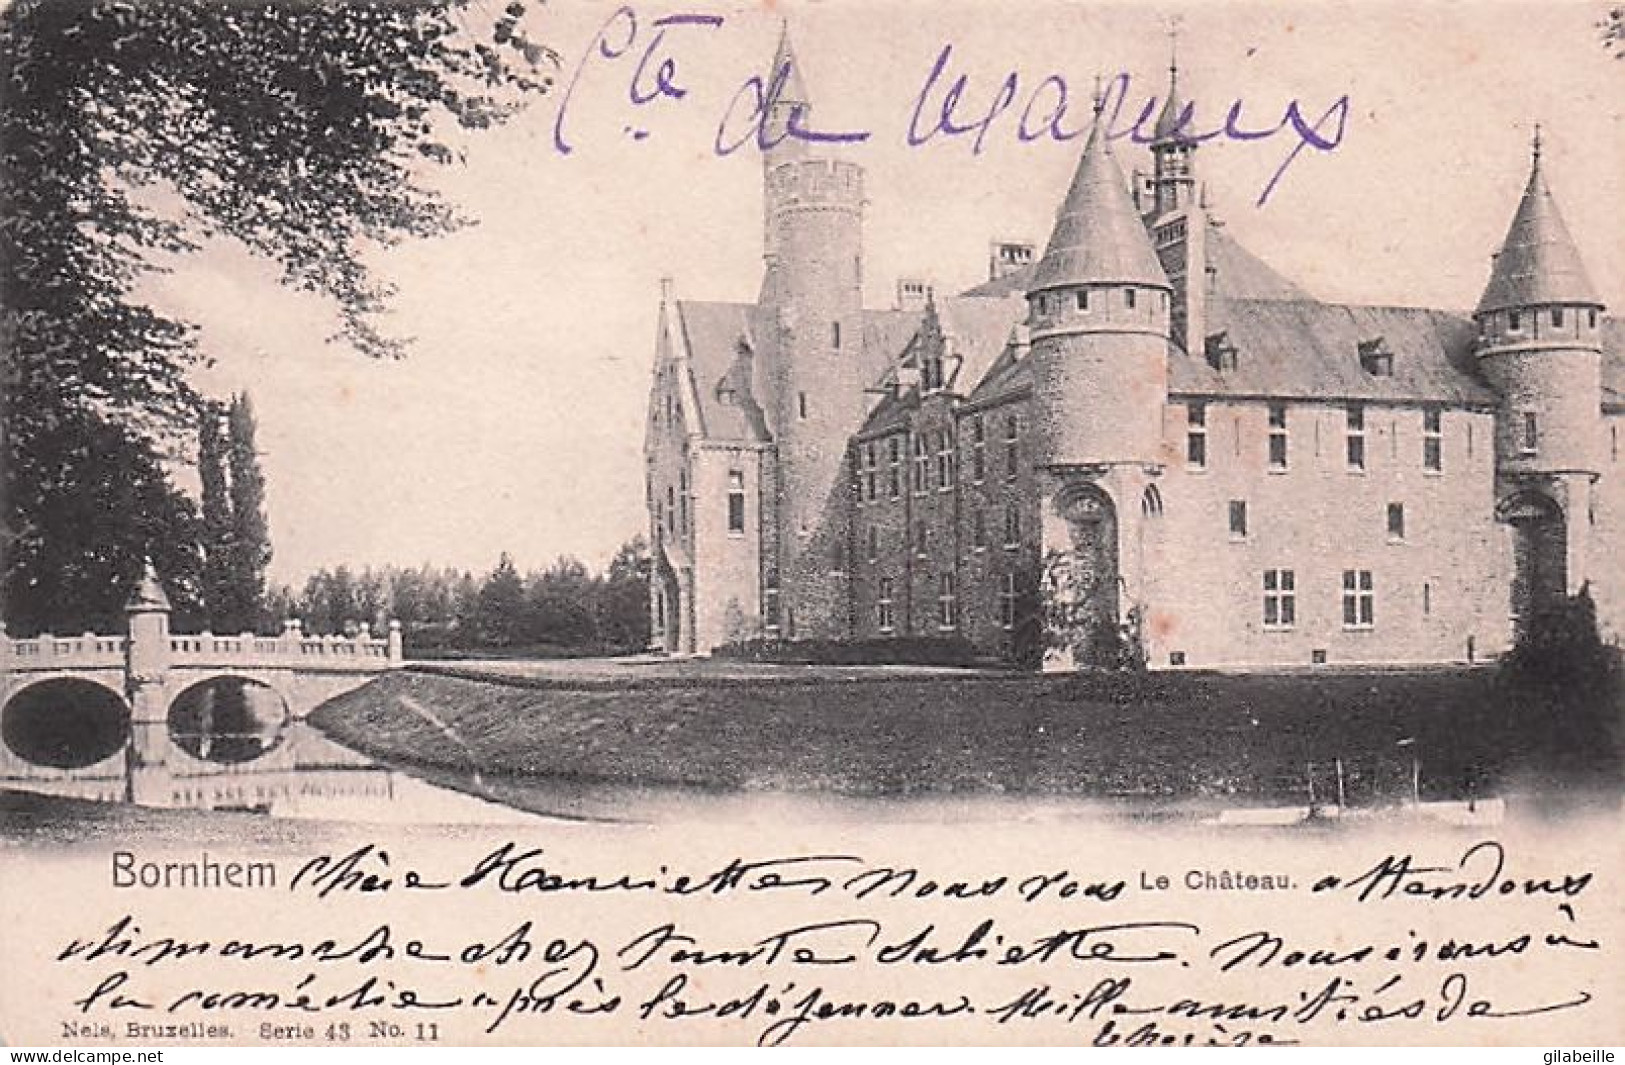 Cte de Marnix
Bornhem Chère Henriette Nous vous Le Château. attendons
dimanche chez Tante Juliette. Nous irons à
la comédie après le déjeuner. Mille amitiés de
Nels, Bruxelles. Serie 43 No. 11
Thérèse
delcampe.net
gilabeille